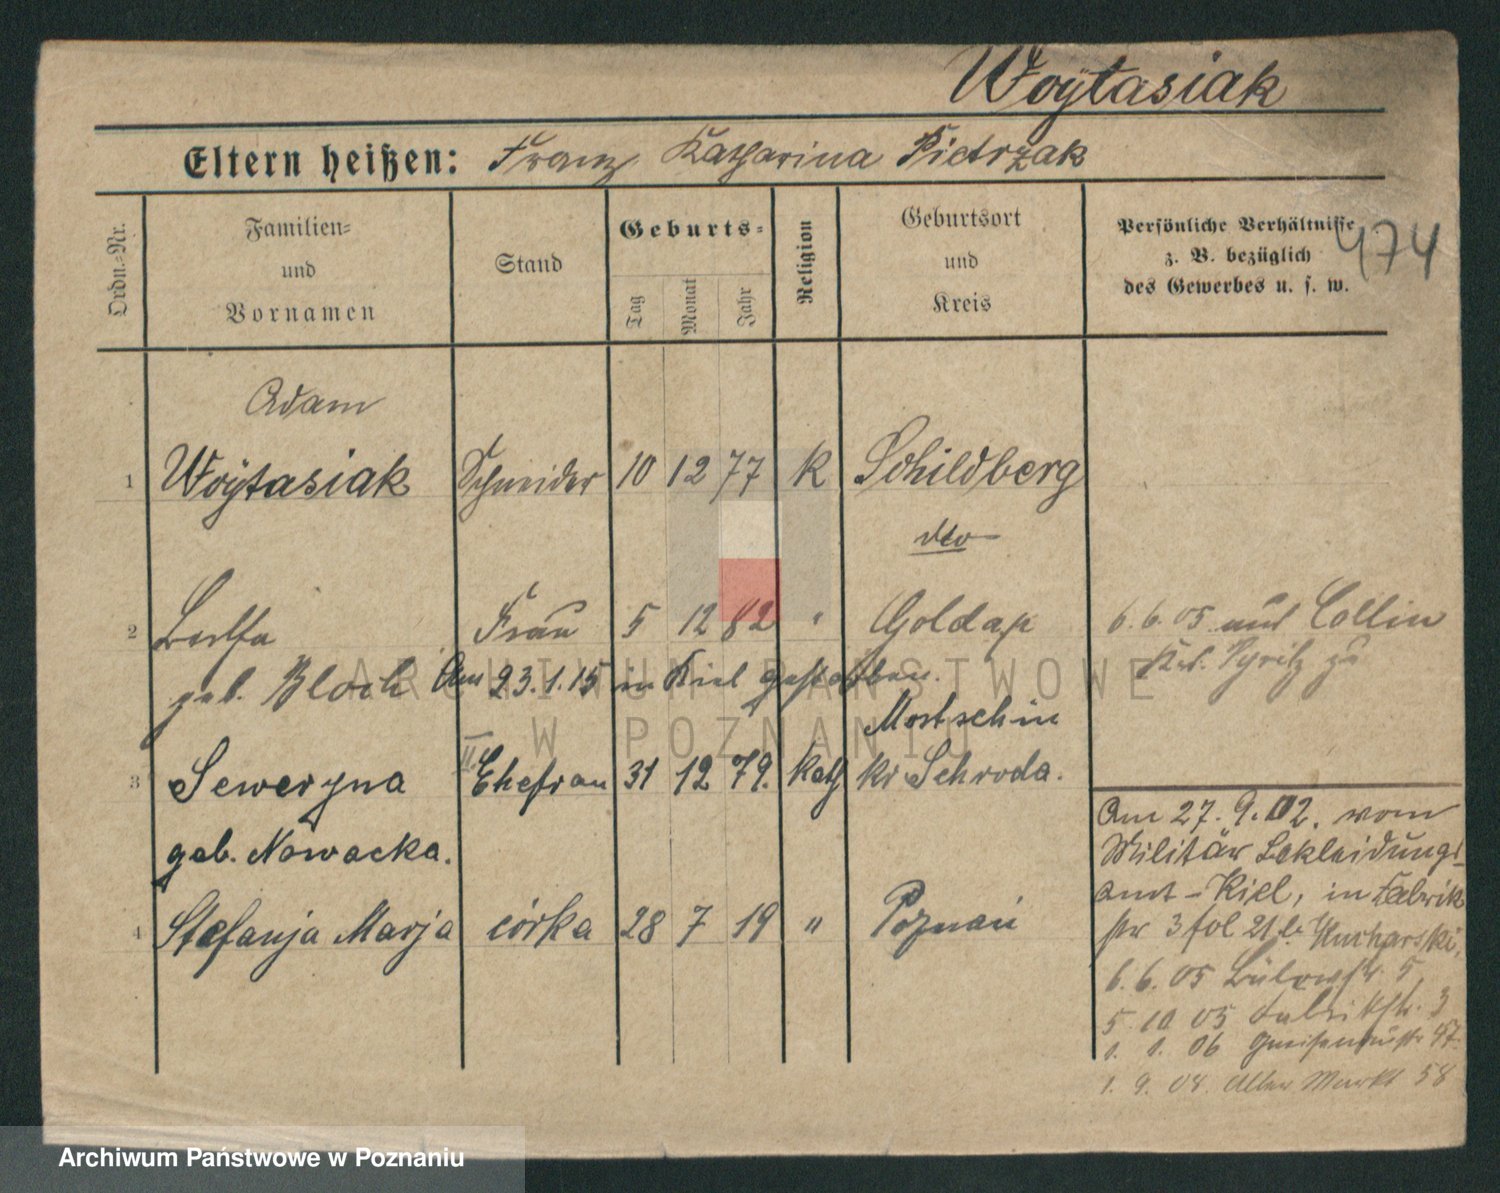 Woÿtasiak
Eltern heißen: Franz Katharina Pietrzak
Ordn.-Nr.
Familien-
und
Vornamen
Stand
Geburts-
Tag
Monat
Jahr
Religion
Geburtsort
und
Kreis
Persönliche Verhältnisse
z. B. bezüglich
des Gewerbes u. s. w.
474
Adam
1 Woÿtasiak Schneider 10 12 77 K Schildberg
dto
2 Bertha Frau 5 12 82 " Goldap 6.6.05 aus Collin
geb. Bloch Am 23.1.15 in Kiel gestorben. Krs. Pyritz zu
Mostschin
3 Seweryna II. Ehefrau 31 12 79. Kath Kr Schroda.
geb. Nowacka.
4 Stefanja Marja córka 28 7 19 " Poznań
Am 27. 9. 02. vom
Militär Bekleidungs-
amt - Kiel, in Fabrik
str 3 fol 21 b. Kucharski,
6. 6. 05 Bülowstr. 5,
5. 10 05 Fabrikstr. 3
1. 1. 06 Gneisenaustr 47
1. 9. 08. Alter Markt 58
ARCHIWUM PAŃSTWOWE
W POZNANIU
Archiwum Państwowe w Poznaniu